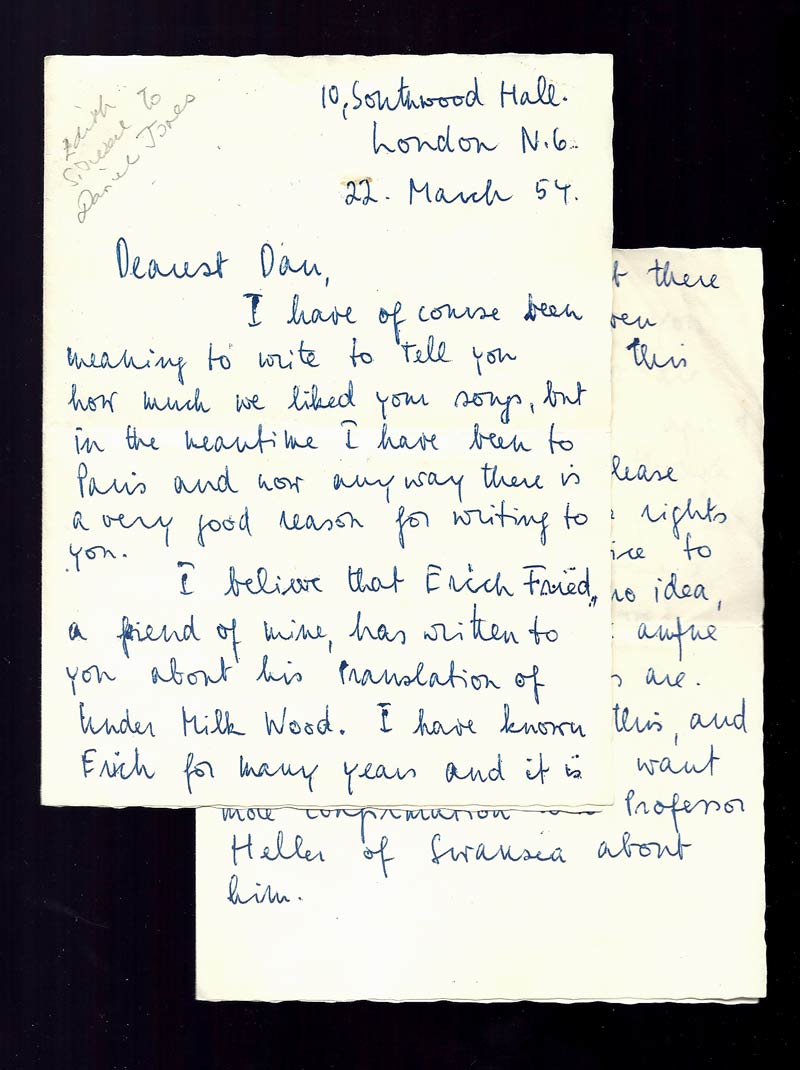 Edith
to
Daniel Jones
10, Southwood Hall.
London N.6.
22. March 54.
Dearest Dan,
I have of course been
meaning to write to tell you
how much we liked your songs, but
in the meantime I have been to
Paris and now anyway there is
a very good reason for writing to
you.
I believe that Erich Fried,
a friend of mine, has written to
you about his translation of
Under Milk Wood. I have known
Erich for many years and it is
there
this
lease
rights
to
no idea,
are.
this, and
want
more confirmation Professor
Heller of Swansea about
him.